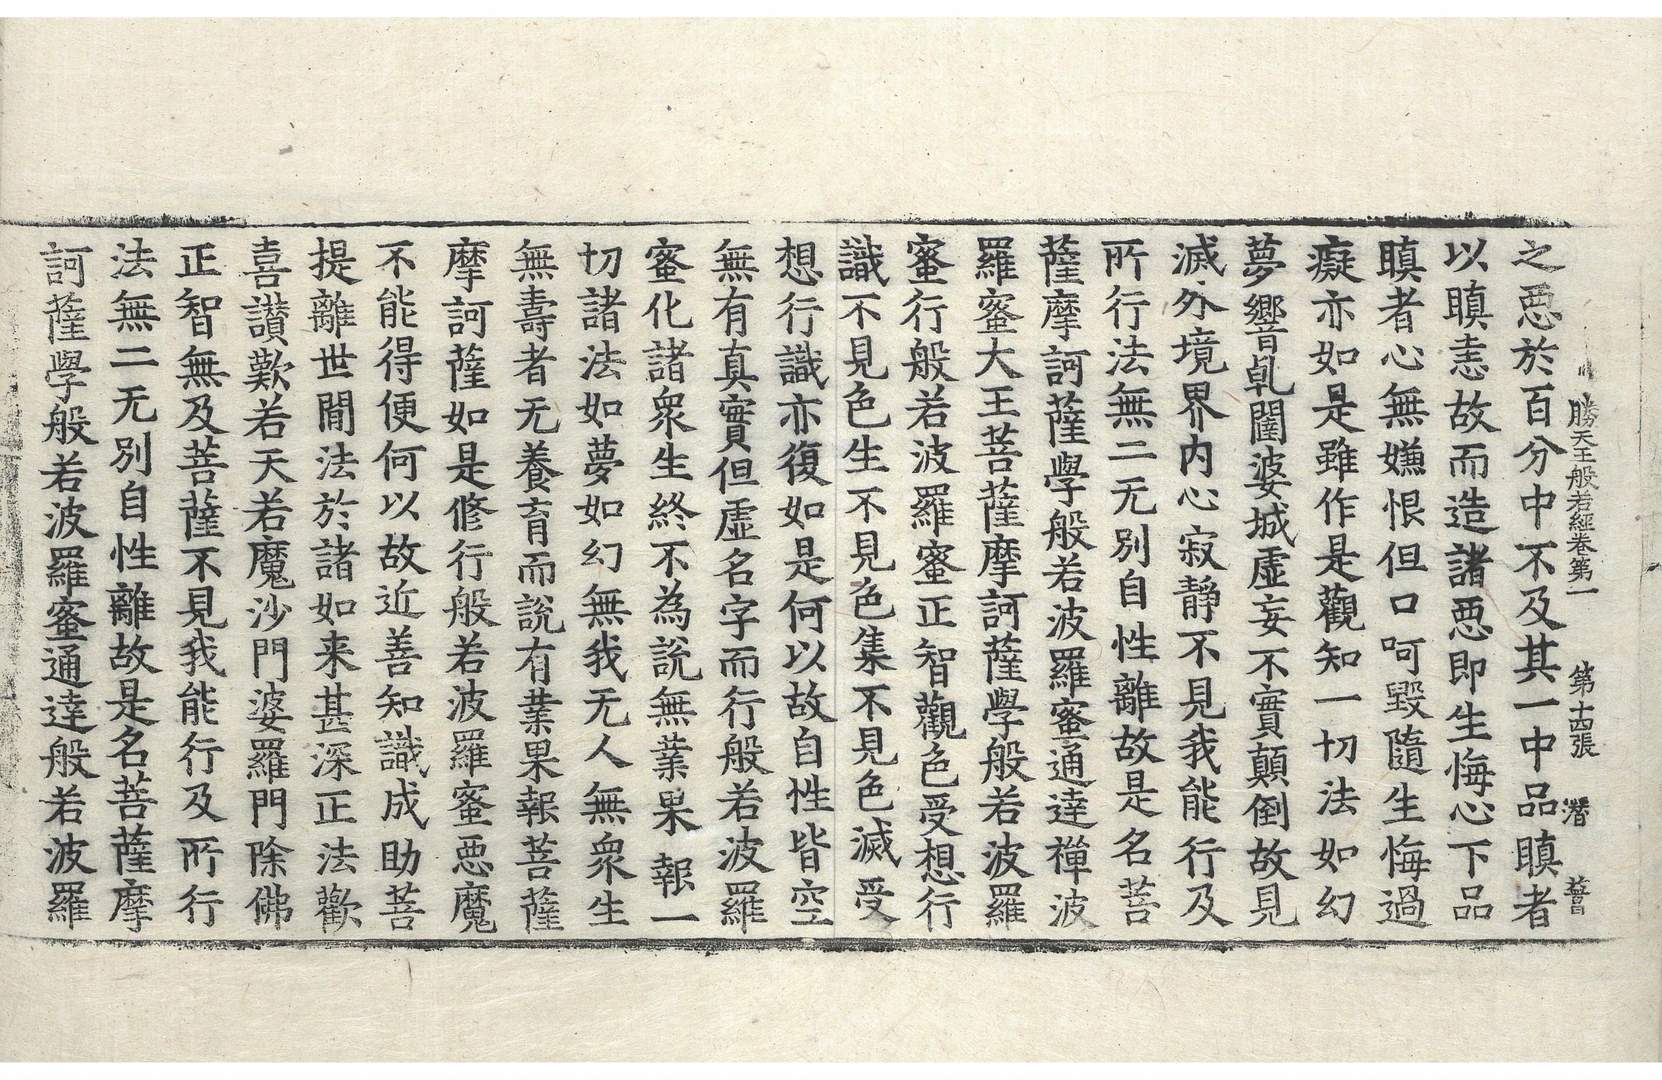 勝天王般若經卷第一　第十四張　潛
之惡於百分中不及其一中品瞋者
以瞋恚故而造諸惡即生悔心下品
瞋者心無嫌恨但口呵毀隨生悔過
癡亦如是雖作是觀知一切法如幻
夢響乹闥婆城虛妄不實顛倒故見
滅外境界內心寂靜不見我能行及
所行法無二无別自性離故是名菩
薩摩訶薩學般若波羅蜜通達禪波
羅蜜大王菩薩摩訶薩學般若波羅
蜜行般若波羅蜜正智觀色受想行
識不見色生不見色集不見色滅受
想行識亦復如是何以故自性皆空
無有真實但虛名字而行般若波羅
蜜化諸衆生終不為說無業果報一
切諸法如夢如幻無我无人無衆生
無壽者无養育而說有業果報菩薩
摩訶薩如是修行般若波羅蜜惡魔
不能得便何以故近善知識成助菩
提離世間法於諸如来甚深正法歡
喜讃歎若天若魔沙門婆羅門除佛
正智無及菩薩不見我能行及所行
法無二无別自性離故是名菩薩摩
訶薩學般若波羅蜜通達般若波羅